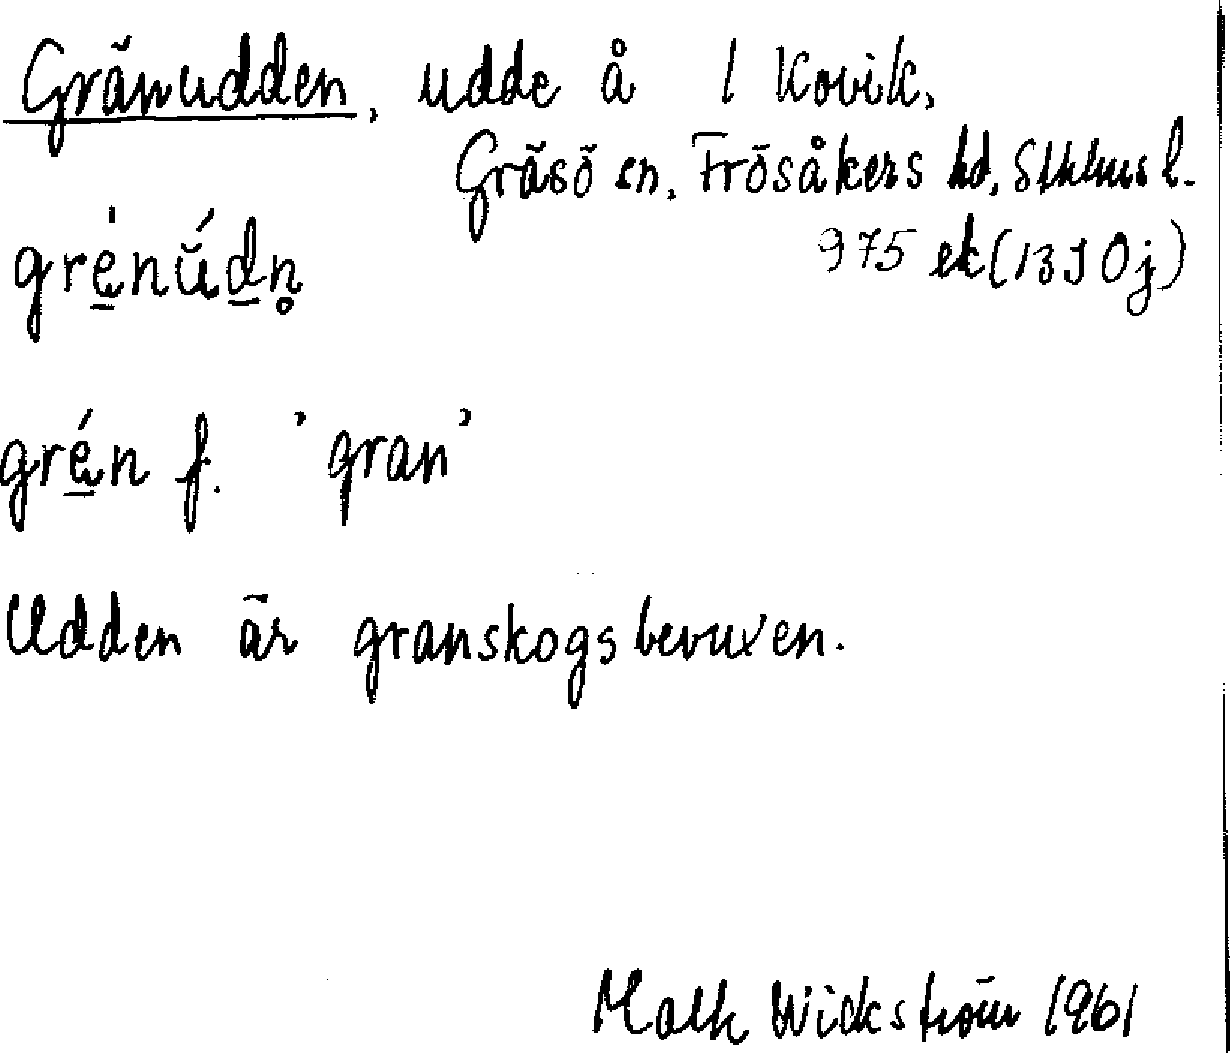 Gränudden, udde å 1 Kovik,
Gräsö sn, Frösåkers hd, Sthlms l.
975 ek (13J 0j)
grènǘdn̥
grén f. 'gran'
Udden är granskogsbevuxen.
Wickström 1961